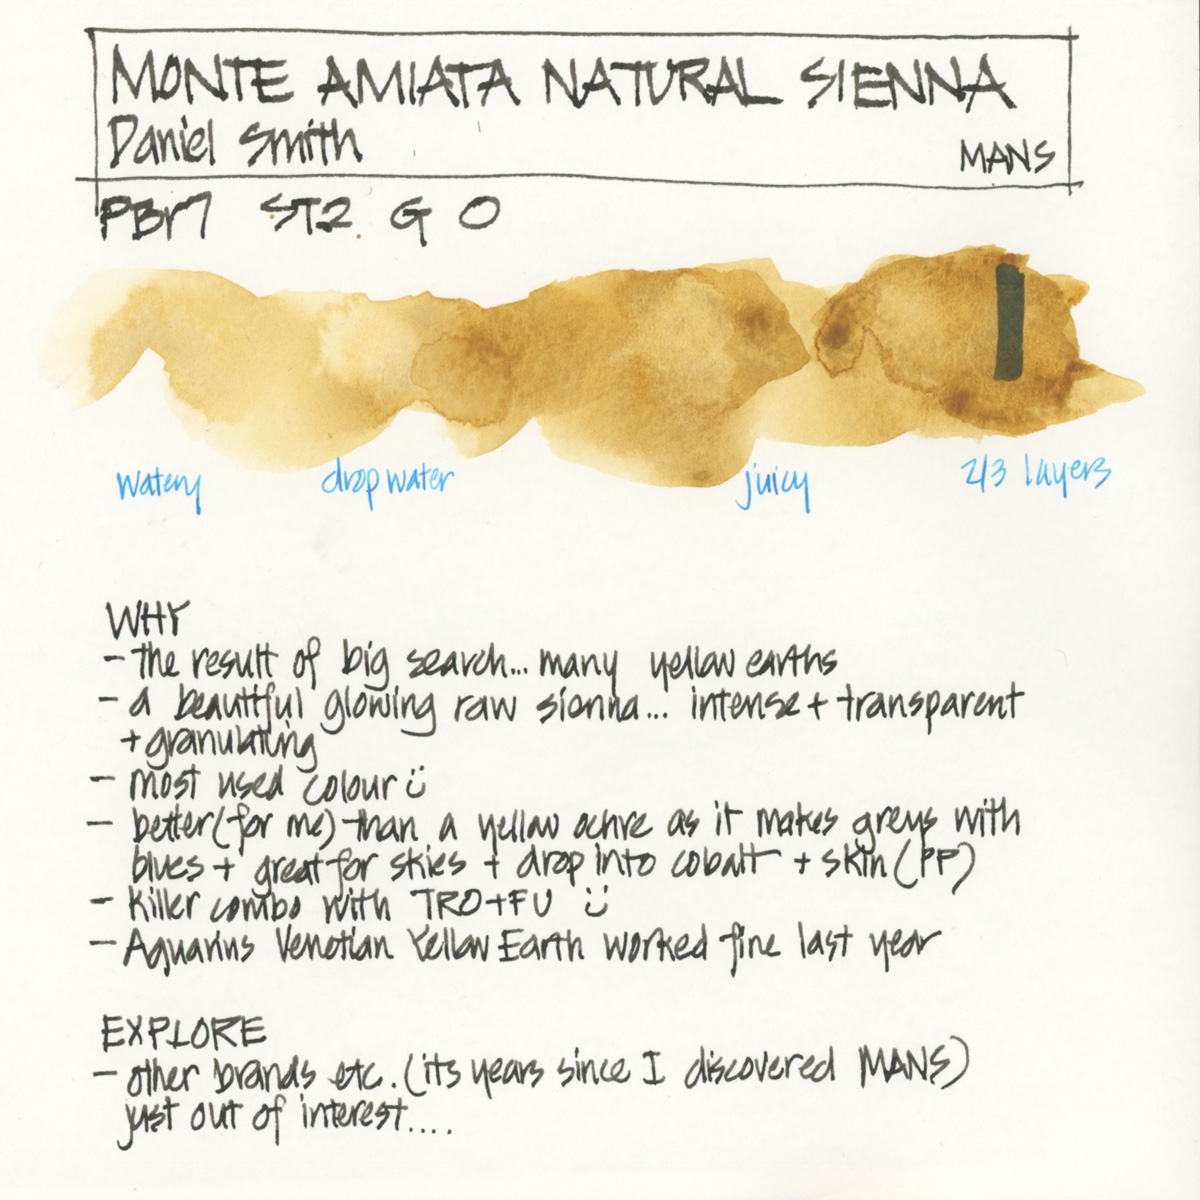 MONTE AMIATA NATURAL SIENNA
Daniel Smith
MANS
PBr7 ST2 G O
watery
drop water
juicy
2/3 layers
WHY
- the result of big search... many yellow earths
- a beautiful glowing raw sienna... intense + transparent
+ granulating
- most used colour ü
- better (for me) than a yellow ochre as it makes greys with
blues + great for skies + drop into cobalt + skin (PP)
- killer combo with TRO+FU ü
- Aquarius Venetian Yellow Earth worked fine last year
EXPLORE
- other brands etc. (its years since I discovered MANS)
just out of interest....